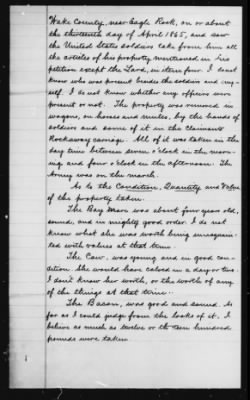 Wake County, near Eagle Rock, on or about
the thirteenth day of April 1865, and saw
the United States soldiers take from him all
the articles of his property mentioned in his
petition except the Lard, in item four. I don't
know who was present besides the soldiers and my-
self. I do not know whether any officers were
present or not. The property was removed in
wagons, on horses and mules, by the hands of
soldiers and some of it in the claimants
Rockaway carriage. All of it was taken in the
day time between seven o'clock in the morn-
ing and four o'clock in the afternoon. The
Army was on the march.
As to the Condition, Quantity and Value
of the property taken.
The Bay Mare was about four years old,
sound, and in mighty good order. I do not
know what she was worth being unacquain-
ted with values at that time.
The Cow. was young and in good con-
dition. She would have calved in a day or two
I don't know her worth, or the worth of any
of the things at that time.
The Bacon, was good and sound. As
far as I could judge from the looks of it. I
believe as much as twelve or thirteen hundred
pounds were taken.